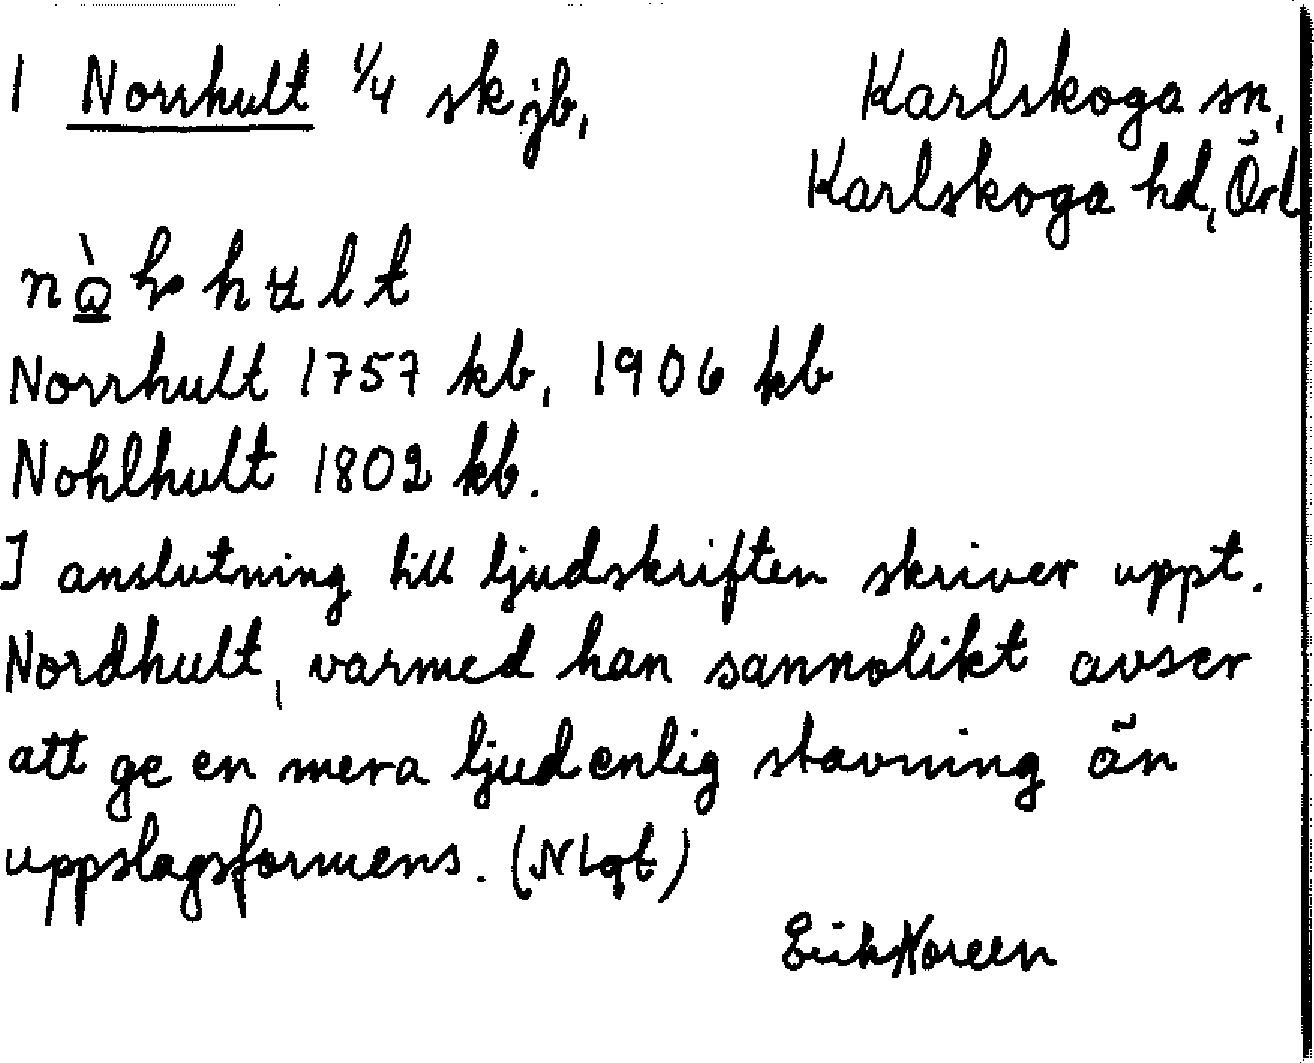 1 Norrhult 1/4 sk jb, Karlskoga sn,
Karlskoga hd, Örl
Norrhult 1757 kb, 1906 kb
Nohlhult 1802 kb.
I anslutning till ljudskriften skriver uppt.
Nordhult, varmed han sannolikt avser
att ge en mera ljudenlig stavning än
uppslagsformens. (NLqt)
Erik Noreen